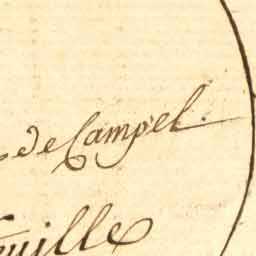 de Campel.
euille